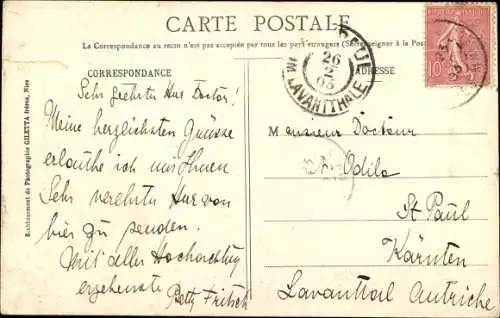 CARTE POSTALE
La Correspondance au recto n'est pas acceptée par tous les pays étrangers (Se renseigner à la Poste)
CORRESPONDANCE
ADRESSE
26
2
05
LAVANTTHALE
10
Sehr geehrter Herr Doctor!
Meine herzlichsten Grüsse
erlaube ich mir Ihnen
Sehr verehrter Herr von
hier zu senden.
Mit aller Hochachtung
ergebenste
Betty Fritsch
Monsieur Docteur
Odilo
St Paul
Kärnten
Lavanttal Autriche
Etablissement de Photographie GILETTA frères, Nice